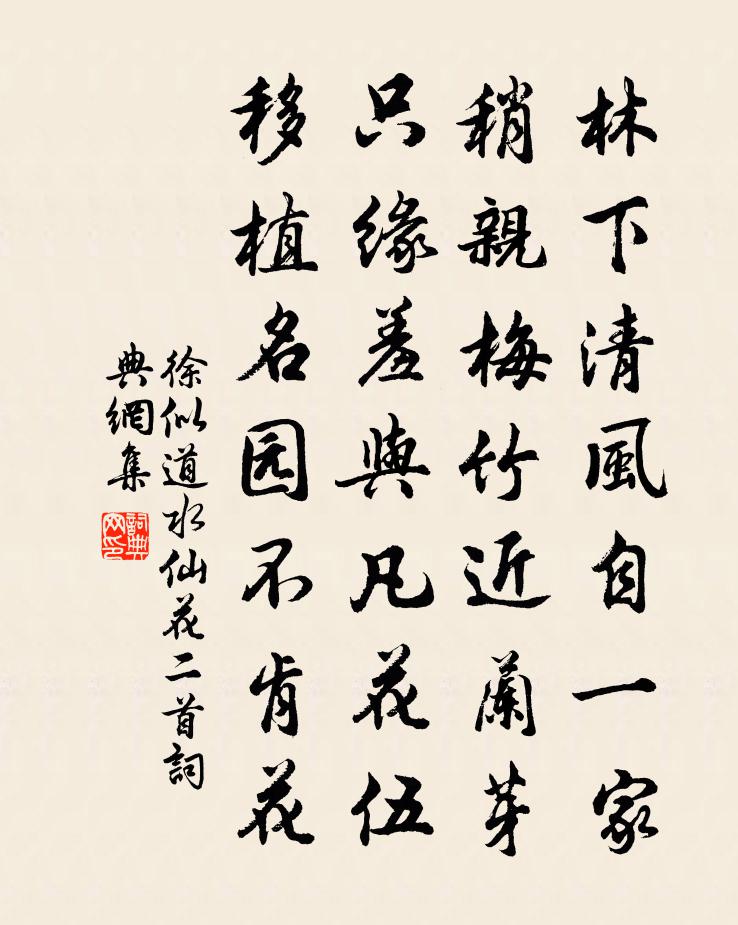 林下清風自一家
稍親梅竹近蘭芽
只緣羞與凡花伍
移植名园不肯花
徐似道水仙花二首詞
典網集
詞典网印